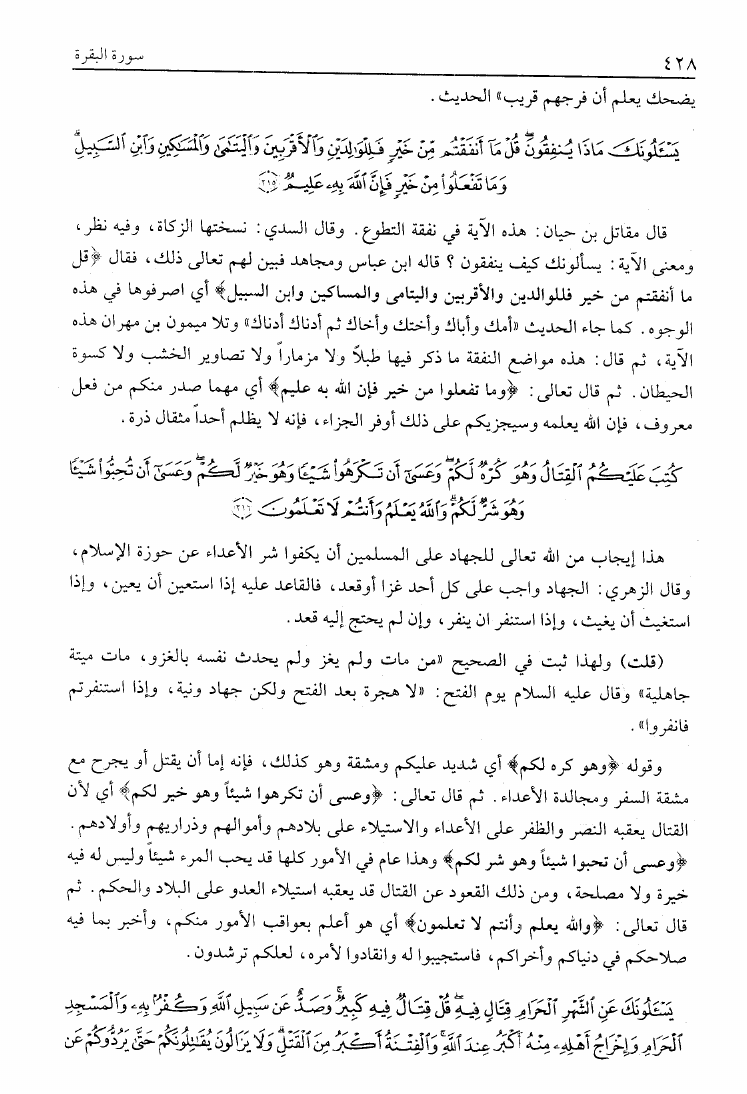 ٤٢٨ سورة البقرة
يضحك يعلم أن فرجهم قريب» الحديث .
يَسْـَٔلُونَكَ مَاذَا يُنفِقُونَ ۖ قُلْ مَآ أَنفَقْتُم مِّنْ خَيْرٍ فَلِلْوَٰلِدَيْنِ وَٱلْأَقْرَبِينَ وَٱلْيَتَٰمَىٰ وَٱلْمَسَٰكِينِ وَٱبْنِ ٱلسَّبِيلِ ۗ
وَمَا تَفْعَلُوا۟ مِنْ خَيْرٍ فَإِنَّ ٱللَّهَ بِهِۦ عَلِيمٌ ﴿٢١٥﴾
قال مقاتل بن حيان : هذه الآية في نفقة التطوع . وقال السدي : نسختها الزكاة، وفيه نظر ،
ومعنى الآية : يسألونك كيف ينفقون ؟ قاله ابن عباس ومجاهد فبين لهم تعالى ذلك، فقال ﴿قل
ما أنفقتم من خير فللوالدين والأقربين واليتامى والمساكين وابن السبيل﴾ أي اصرفوها في هذه
الوجوه . كما جاء الحديث «أمك وأباك وأختك وأخاك ثم أدناك أدناك» وتلا ميمون بن مهران هذه
الآية ، ثم قال : هذه مواضع النفقة ما ذكر فيها طبلاً ولا مزماراً ولا تصاوير الخشب ولا كسوة
الحيطان . ثم قال تعالى : ﴿وما تفعلوا من خير فإن الله به عليم﴾ أي مهما صدر منكم من فعل
معروف، فإن الله يعلمه وسيجزيكم على ذلك أوفر الجزاء، فإنه لا يظلم أحداً مثقال ذرة .
كُتِبَ عَلَيْكُمُ ٱلْقِتَالُ وَهُوَ كُرْهٌ لَّكُمْ ۖ وَعَسَىٰٓ أَن تَكْرَهُوا۟ شَيْـًٔا وَهُوَ خَيْرٌ لَّكُمْ ۖ وَعَسَىٰٓ أَن تُحِبُّوا۟ شَيْـًٔا
وَهُوَ شَرٌّ لَّكُمْ ۗ وَٱللَّهُ يَعْلَمُ وَأَنتُمْ لَا تَعْلَمُونَ ﴿٢١٦﴾
هذا إيجاب من الله تعالى للجهاد على المسلمين أن يكفوا شر الأعداء عن حوزة الإسلام،
وقال الزهري : الجهاد واجب على كل أحد غزا أوقعد، فالقاعد عليه إذا استعين أن يعين، وإذا
استغيث أن يغيث، وإذا استنفر ان ينفر، وإن لم يحتج إليه قعد .
(قلت) ولهذا ثبت في الصحيح «من مات ولم يغز ولم يحدث نفسه بالغزو، مات ميتة
جاهلية» وقال عليه السلام يوم الفتح : «لا هجرة بعد الفتح ولكن جهاد ونية، وإذا استنفرتم
فانفروا» .
وقوله ﴿وهو كره لكم﴾ أي شديد عليكم ومشقة وهو كذلك، فإنه إما أن يقتل أو يجرح مع
مشقة السفر ومجالدة الأعداء . ثم قال تعالى : ﴿وعسى أن تكرهوا شيئاً وهو خير لكم﴾ أي لأن
القتال يعقبه النصر والظفر على الأعداء والاستيلاء على بلادهم وأموالهم وذراريهم وأولادهم .
﴿وعسى أن تحبوا شيئاً وهو شر لكم﴾ وهذا عام في الأمور كلها قد يحب المرء شيئاً وليس له فيه
خيرة ولا مصلحة، ومن ذلك القعود عن القتال قد يعقبه استيلاء العدو على البلاد والحكم . ثم
قال تعالى : ﴿والله يعلم وأنتم لا تعلمون﴾ أي هو أعلم بعواقب الأمور منكم، وأخبر بما فيه
صلاحكم في دنياكم وأخراكم، فاستجيبوا له وانقادوا لأمره، لعلكم ترشدون .
يَسْـَٔلُونَكَ عَنِ ٱلشَّهْرِ ٱلْحَرَامِ قِتَالٍ فِيهِ ۖ قُلْ قِتَالٌ فِيهِ كَبِيرٌ ۖ وَصَدٌّ عَن سَبِيلِ ٱللَّهِ وَكُفْرٌۢ بِهِۦ وَٱلْمَسْجِدِ
ٱلْحَرَامِ وَإِخْرَاجُ أَهْلِهِۦ مِنْهُ أَكْبَرُ عِندَ ٱللَّهِ ۚ وَٱلْفِتْنَةُ أَكْبَرُ مِنَ ٱلْقَتْلِ ۗ وَلَا يَزَالُونَ يُقَٰتِلُونَكُمْ حَتَّىٰ يَرُدُّوكُمْ عَن